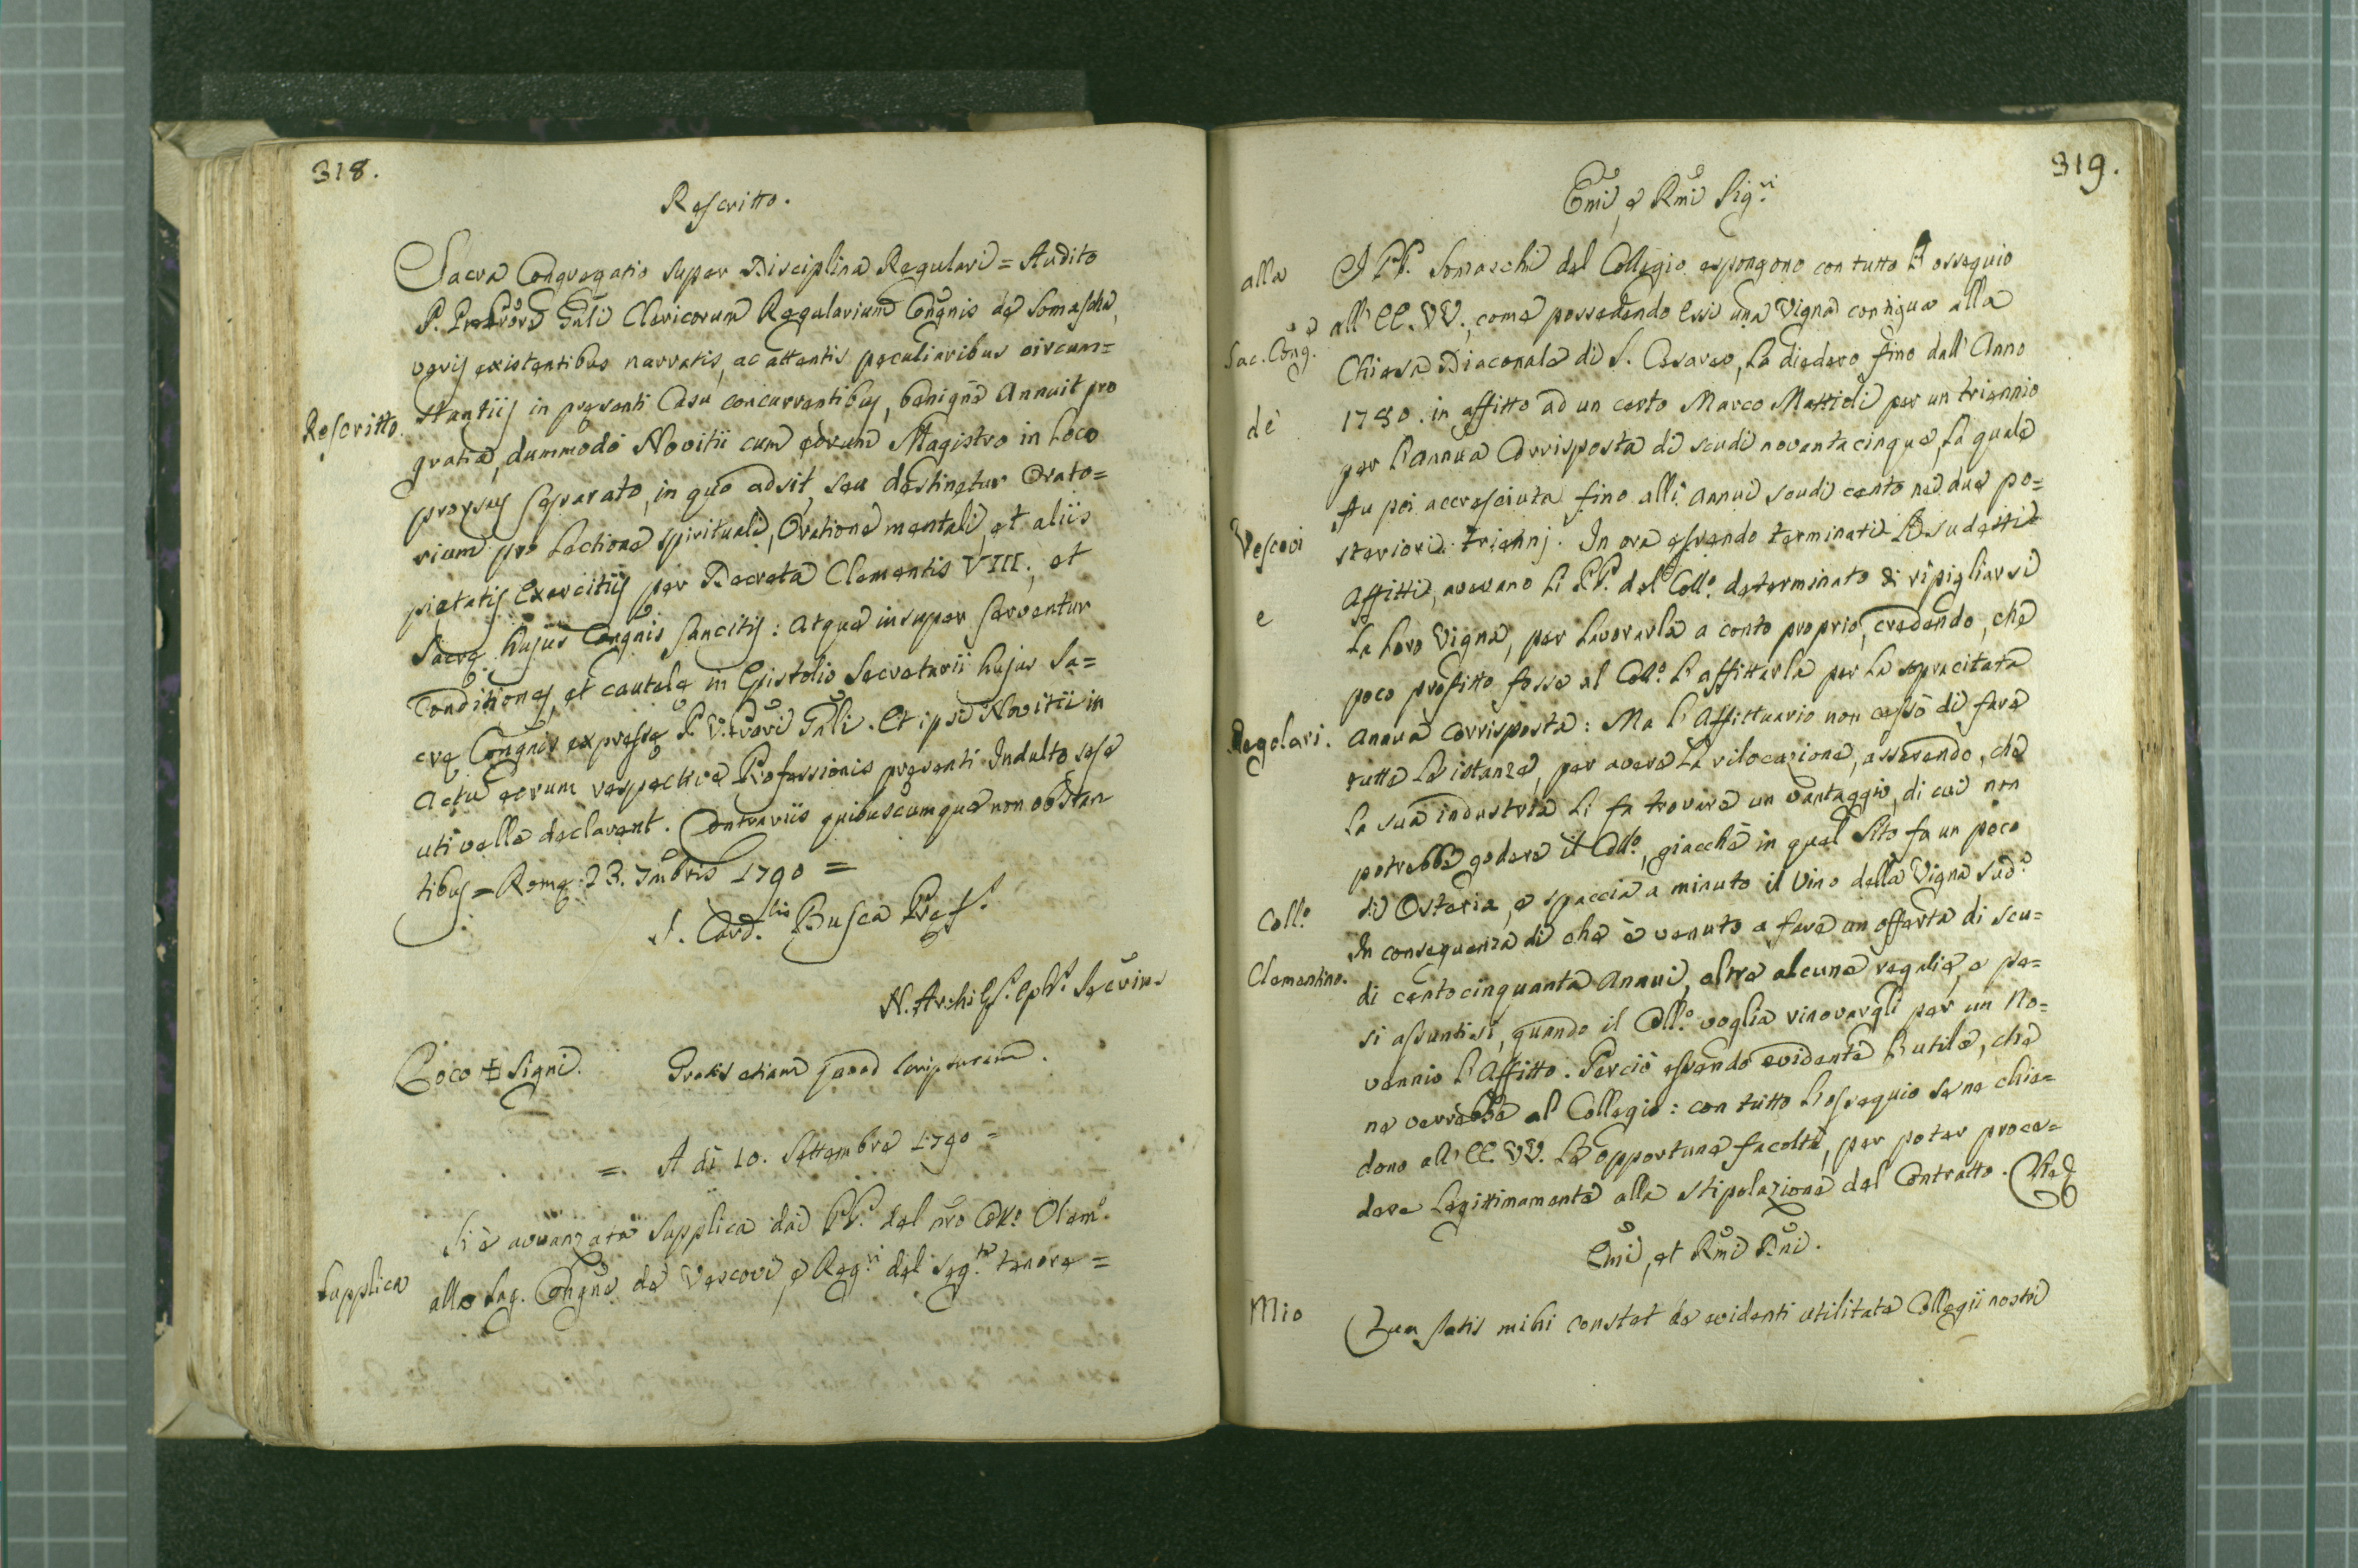 318.
Rescritto.
Sacra Congregatio super Disciplina Regulari = Audito
P. Prãtore Gñli Clericorum Regularium Congñis de Somascha,
veris existentibus narratis, ac attentis peculiaribus circum=
Rescritto. stantiis in presenti Casu concurrentibus, benigne Annuit pro
gratia, dummodò Novitii cum eorum Magistro in loco
prorsus separato, in quo adsit, seu destinetur Orato=
rium pro Lectione spirituali, Oratione mentali, et aliis
pietatis Exercitiis per Decreta Clementis VIII., et
Sacrę hujus Congñis sancitis: Atque insuper serventur
Conditiones, et cautelę in Epistolis Secretarii hujus Sa=
crę Congñis expressę P. Prori Gñli. Et ipsi Novitii in
Actu eorum respective Professionis presenti Indulto sese
uti velle declarent. Contrariis quibuscumque non obstan
tibus = Romę 23. 7mbris 1790 =
I. Card.lis Busca Pręf.s
N. Archiep.s Secrius
Loco ✠ Signi. Gratis etiam quoad scripturam.
=. A di 10. Settembre 1790 =
Si è avvanzata Supplica dai PP. del nro Collo. Clemo.
Supplica alla Sag. Congñe de Vescovi, e Reg.ri del seg.te tenore =
319.
Emi, e Rmi Sig.ri
alla I PP. Somaschi del Collegio espongono con tutto l'ossequio
Sac. Cong.e all' EE. VV., come possedendo essi una Vigna contigua alla
Chiesa Diaconale di S. Cesareo, la diedero fino dall' Anno
de' 1780. in affitto ad un certo Marco Mattioli per un triennio
per l'annua Corrisposta di scudi novantacinque, la quale
fu poi accresciuta fino alli annui scudi cento nei due po=
Vescovi steriori trienni. In ora essendo terminati li sudetti
Affitti, avevano li PP. del Coll.o determinato di ripigliarsi
e la loro Vigna, per lavorarla a conto proprio, credendo, che
poco profitto fosse al Coll.o l'affittarla per la sopracitata
Regolari. annua Corrisposta: Ma l'Affittuario non cessò di fare
tutte le istanze, per avere la rilocazione, asserendo, che
la sua industria li fa trovare un vantaggio, di cui non
potrebbe godere il Coll.o, giacchè in quel Sito fa un poco
di Osteria, e spaccia a minuto il Vino della Vigna sud.a
Coll.o In consequenza di che è venuto a fare un offerta di scu=
Clementino. di centocinquanta annui, oltre alcune regalie, e pe=
si assuntisi, quando il Coll.o voglia rinovargli per un No=
vennio l'Affitto. Perciò essendo evidente l'utile, che
ne verrebbe al Collegio: con tutto l'ossequio se ne chie=
dono all' EE. VV. le opportune facoltà, per poter proce=
dere legittimamente alla stipolazione del Contratto. Che
Emi, et Rmi Dñi.
Mio Cum satis mihi constet de evidenti utilitate Collegii nostri